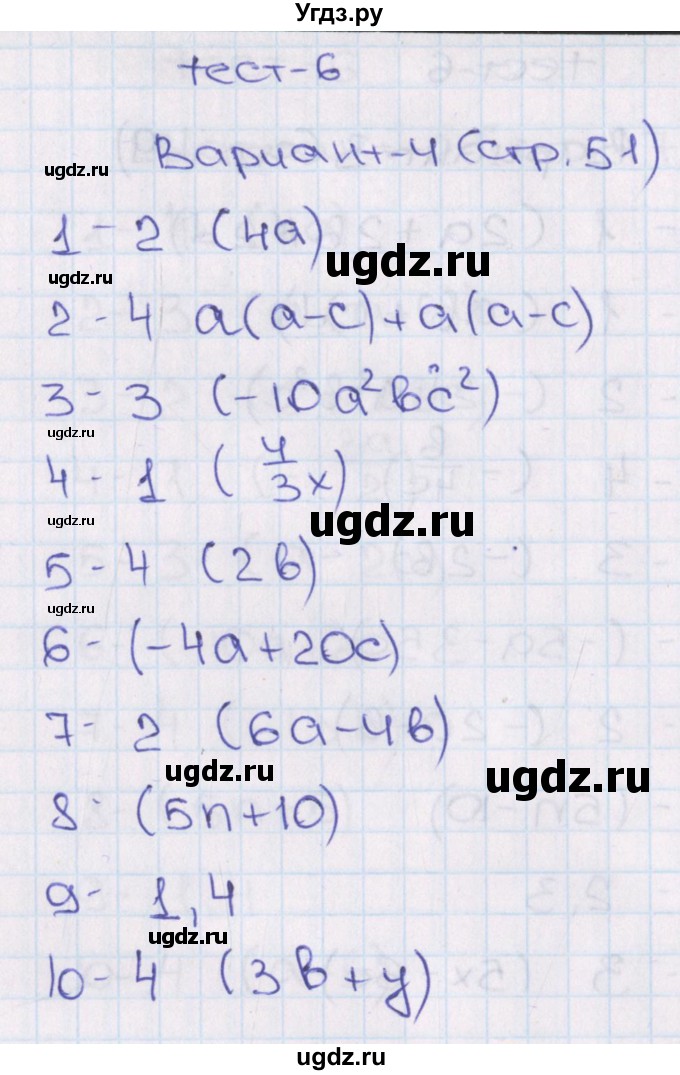 Угдз.ру
тест-6
Вариант-4 (стр.51)
ugdz.ru
1 - 2 (4a)
ugdz.ru
ugdz.ru
2 - 4 a(a-c)+a(a-c)
3 - 3 (-10a²вc²)
ugdz.ru
4 - 1 (4/3x)
ugdz.ru
ugdz.ru
5 - 4 (2в)
ugdz.ru
6 - (-4a+20c)
7 - 2 (6a-4в)
ugdz.ru
ugdz.ru
8 - (5n+10)
9 - 1,4
ugdz.ru
10 - 4 (3в+y)
ugdz.ru